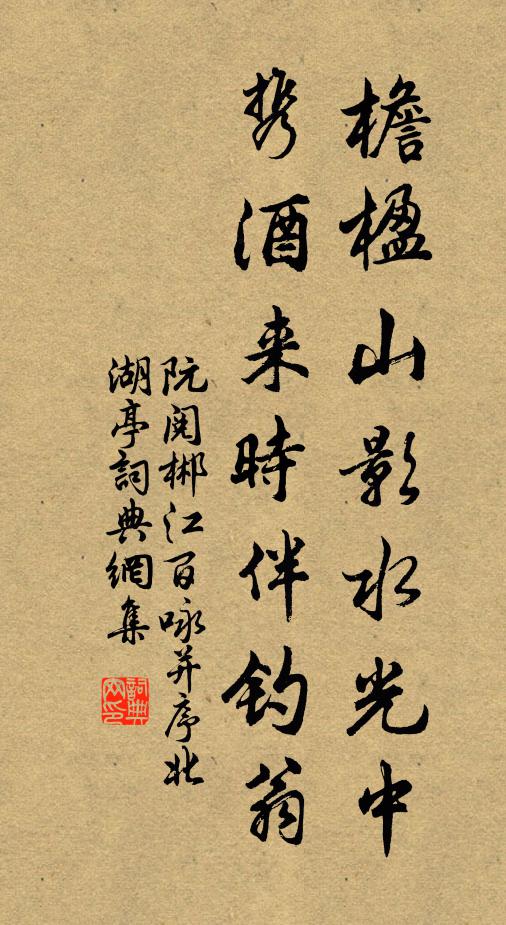 檐楹山影水光中
携酒来時伴钓翁
阮閱郴江百咏并序北
湖亭詞典網集
詞典
网印